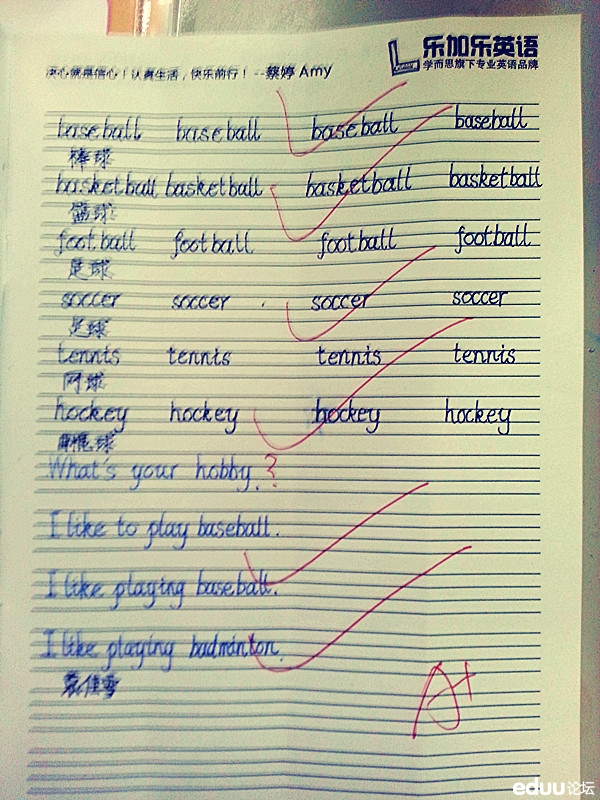 乐加乐英语
学而思旗下专业英语品牌
决心就是信心!认真生活,快乐前行! --蔡婷 Amy
baseball baseball baseball baseball
棒球
basketball basketball basketball basketball
篮球
football football football football
足球
soccer soccer soccer soccer
足球
tennis tennis tennis tennis
网球
hockey hockey hockey hockey
棍球
What's your hobby?
I like to play baseball.
I like playing baseball.
I like playing badminton.
A+
eduu论坛